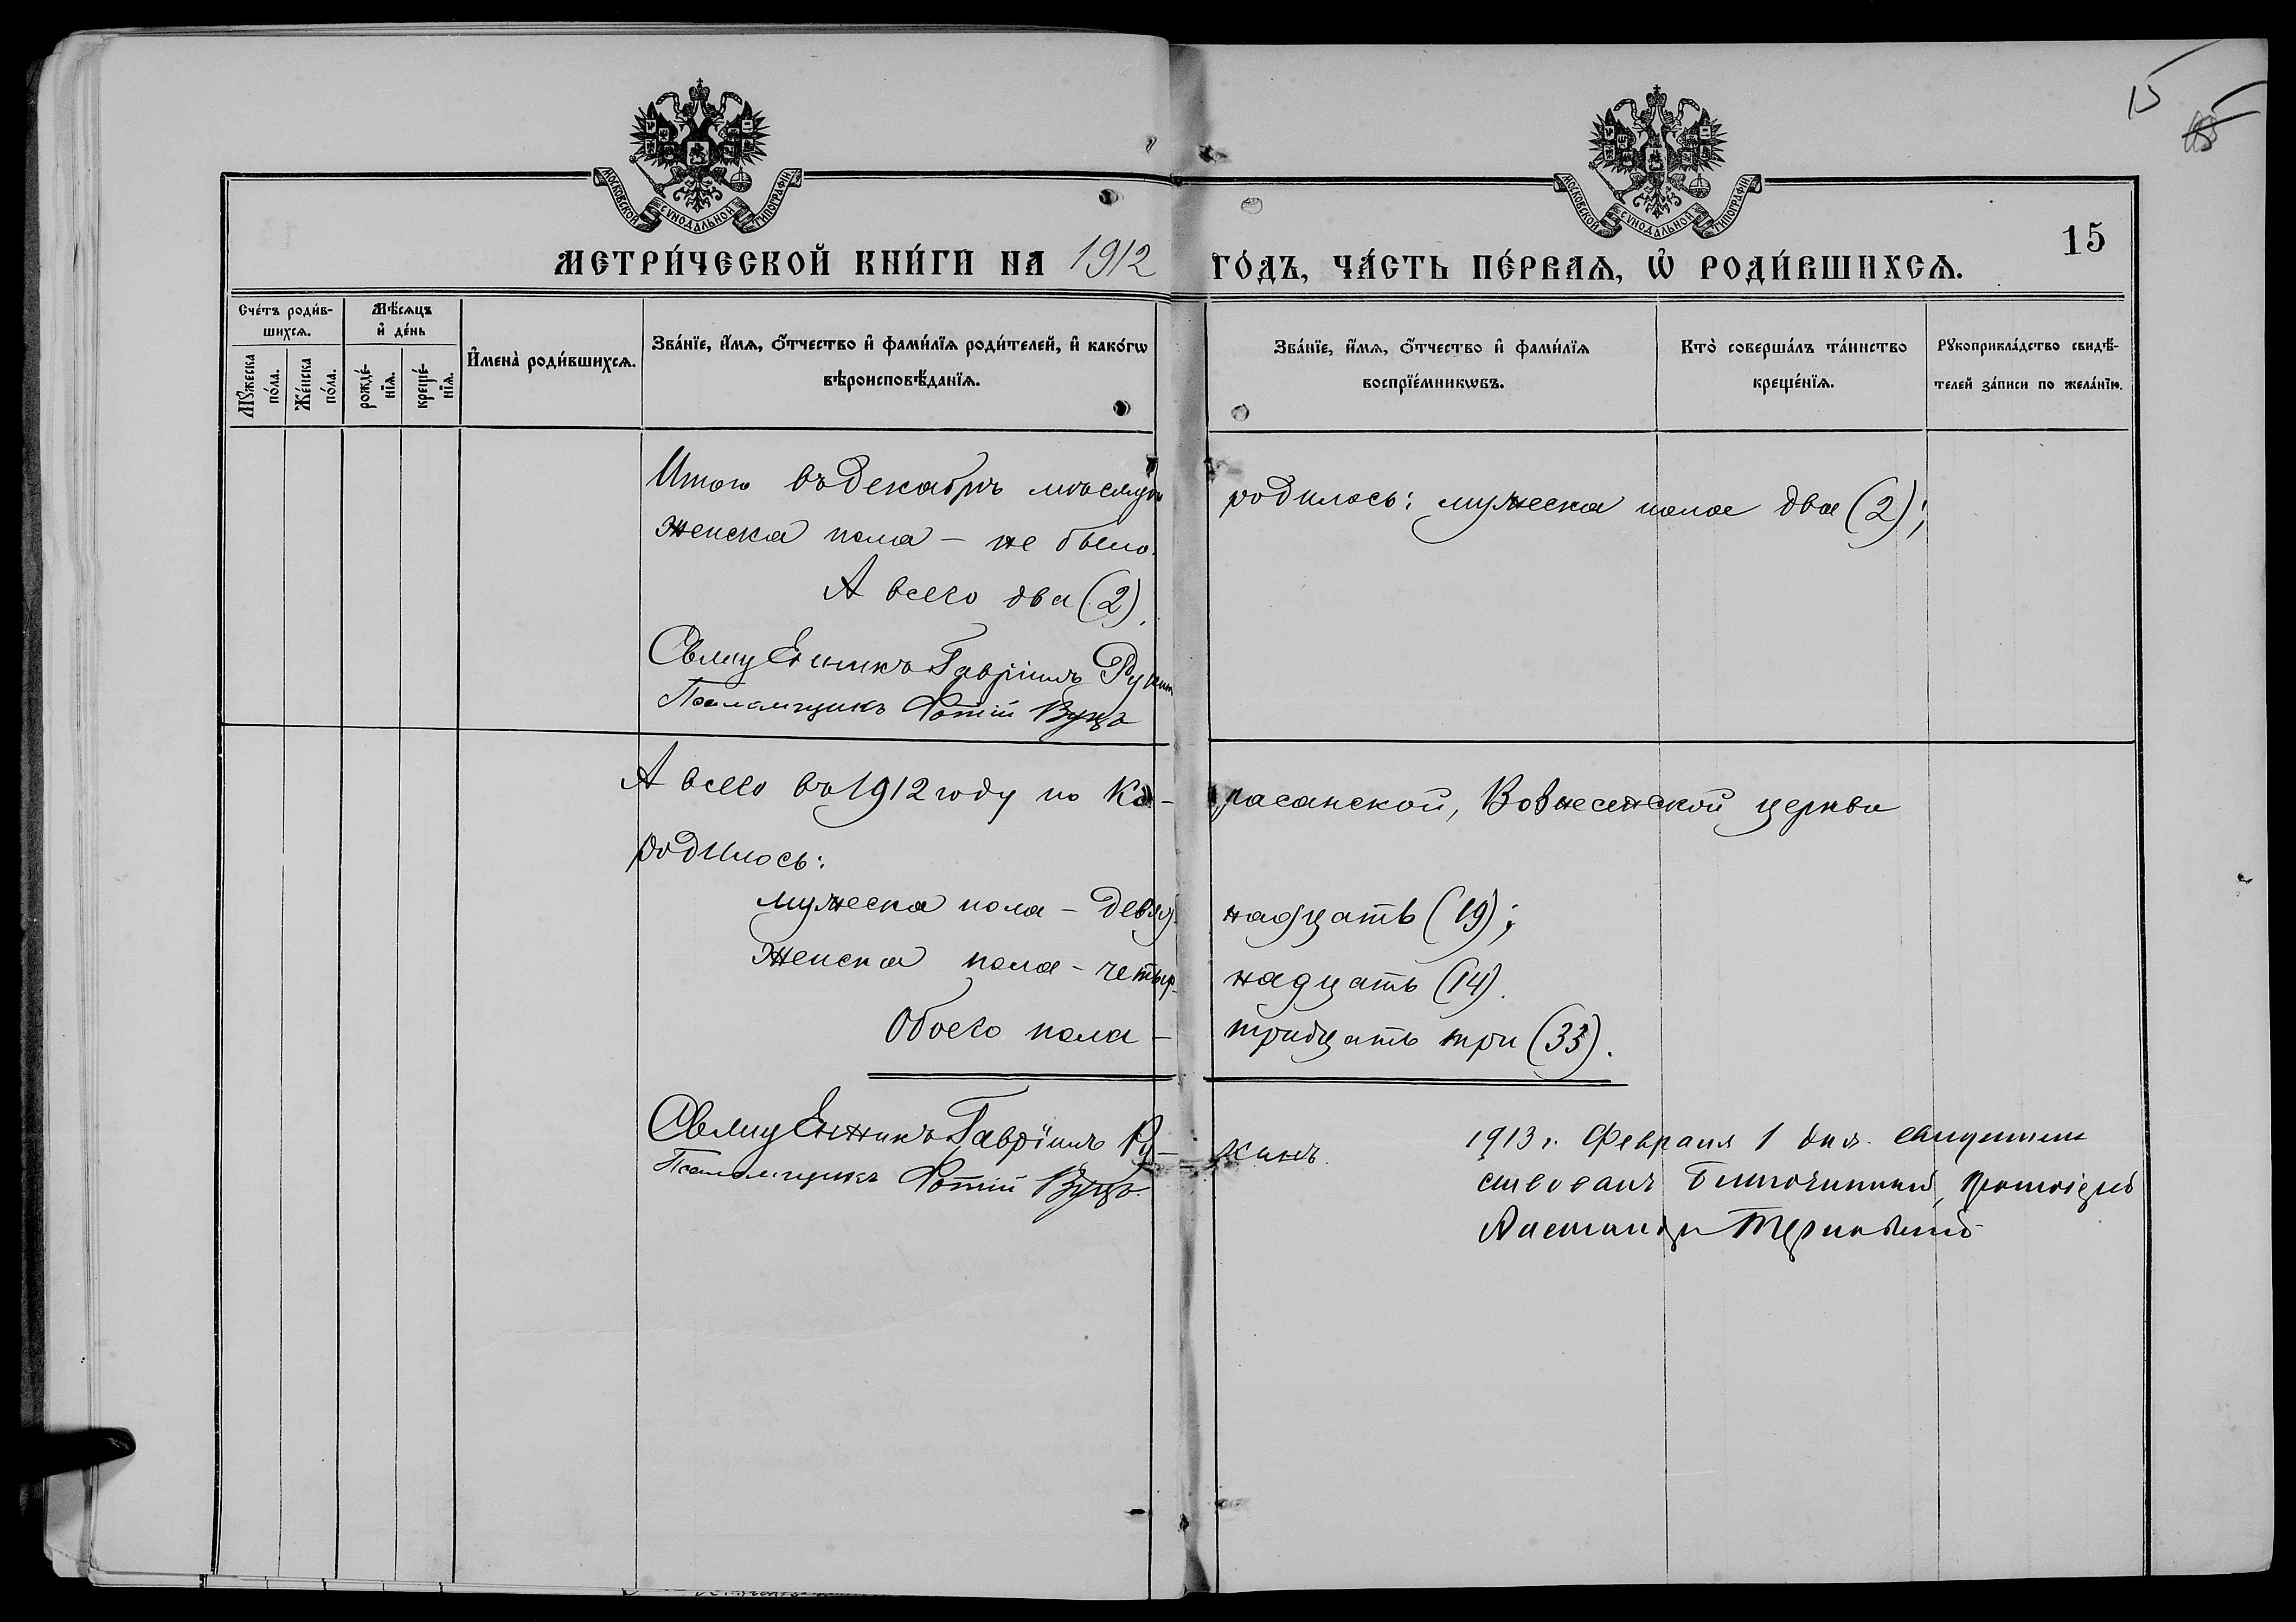 15
МОСКОВСКОЙ СѴНОДАЛЬНОЙ ТИПОГРАФІИ
МОСКОВСКОЙ СѴНОДАЛЬНОЙ ТИПОГРАФІИ
15
МЕТРИ́ЧЕСКОЙ КНИ́ГИ НА 1912 ГО́ДЪ, ЧА́СТЬ ПЕ́РВАѦ, Ѡ҆ РОДИ́ВШИХСѦ.
Сче́тъ роди́в-
шихсѧ.
Мѣ́сѧцъ
и҆ де́нь
Мꙋ́жеска
по́ла.
Же́нска
по́ла.
рожде́-
нїѧ.
креще́-
нїѧ.
И҆мена̀ роди́вшихсѧ.
Зва́нїе, и҆́мѧ, ѻ҆́тчество и҆ фами́лїѧ роди́телей, и҆ како́гѡ
вѣроисповѣ́данїѧ.
Зва́нїе, и҆́мѧ, ѻ҆́тчество и҆ фами́лїѧ
воспрїе́мникѡвъ.
Кто̀ соверша́лъ та́инство
креще́нїѧ.
Рꙋкоприкла́дство свидѣ́-
телей за́писи по жела́нїю.
Итого въ Декабрѣ мѣсяцѣ родилось: мужеска пола два (2);
женска пола – не было.
А всего два (2).
Священникъ Гавріилъ
Псаломщикъ Фотій Вуцъ
А всего въ 1912 году по Ка- расанской, Вознесенской церкви
родилось:
мужеска пола – девят- надцать (19);
женска пола – четыр- надцать (14).
Обоего пола – тридцать три (33).
Священникъ Гавріилъ Ру- кинъ.
Псаломщикъ Фотій Вуцъ.
1913 г. Февраля 1 дня. свидѣтель
ствовалъ Благочинный, протоіерей
Александръ Терновскій